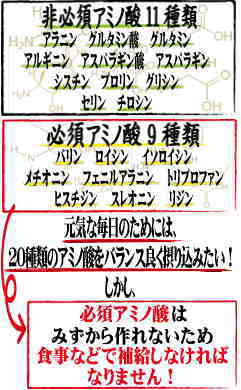 非必須アミノ酸11種類
アラニン グルタミン酸 グルタミン
アルギニン アスパラギン酸 アスパラギン
シスチン プロリン グリシン
セリン チロシン
必須アミノ酸9種類
バリン ロイシン イソロイシン
メチオニン フェニルアラニン トリプトファン
ヒスチジン スレオニン リジン
元気な毎日のためには、
20種類のアミノ酸をバランス良く摂り込みたい！
しかし、
必須アミノ酸は
みずから作れないため
食事などで補給しなければ
なりません！